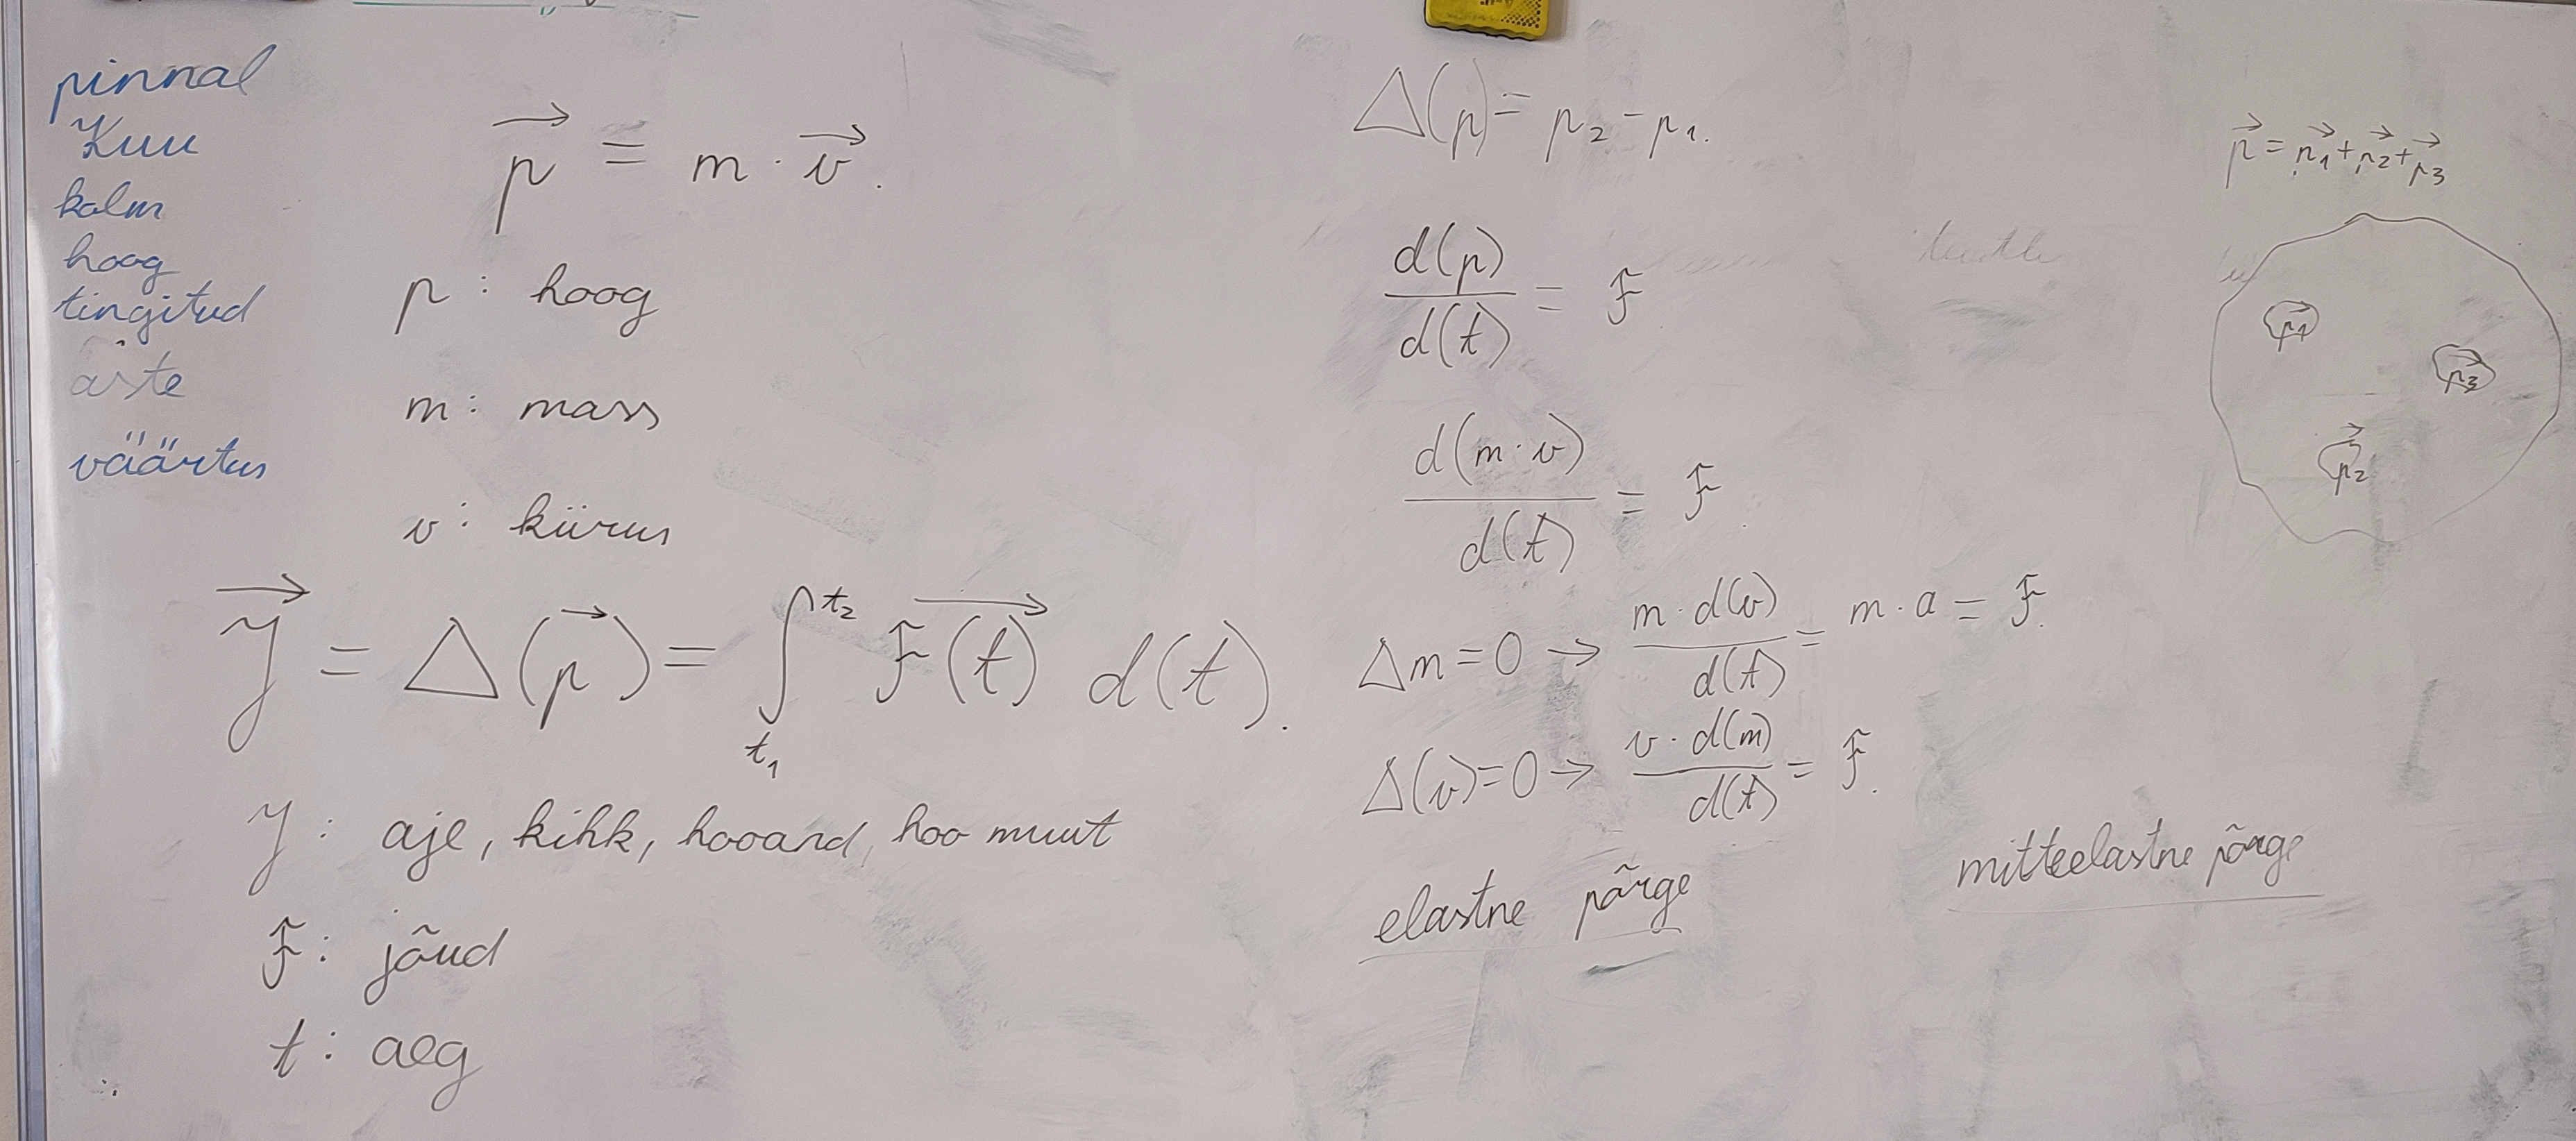 pinnal
Kuu
kalm
hoog
tingitud
aste
väärtus
p⃗ = m · v⃗.
p : hoog
m : mass
v : kiirus
J⃗ = Δ(p⃗) = ∫ₜ₁ᵗ² F⃗(t) d(t).
J : aje, kihk, hooand, hoo muut
F : jõud
t : aeg
Δ(p) = p₂ - p₁.
d(p)/d(t) = F
d(m · v)/d(t) = F.
Δm = 0 → m · d(v)/d(t) = m · a = F.
Δ(v) = 0 → v · d(m)/d(t) = F.
elastne põrge
mitteelastne põrge
p⃗ = p⃗₁ + p⃗₂ + p⃗₃
p⃗₁
p⃗₃
p⃗₂